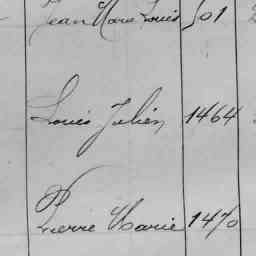 Jean Marie Louis 501
Louis Julien 1464
Pierre Marie 1470